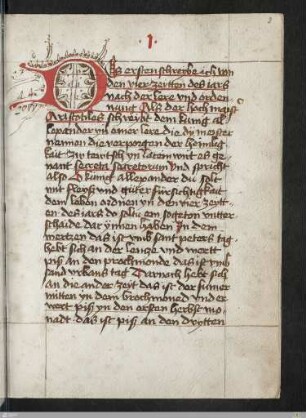 1.
Des ersten schreibe ich von
den vier zeitten des iars
nach der lere und orden
nung Als der hoch maister
Aristotiles schreibt dem kunig al
exander yn einer lere die dy maister
nennen die verporgen der heimlig
kait zu teutsch yn latein ist es ge
nant secreta secretorum und spricht
also O kunig alexander du solt
mit fleiss und guter fürsichtigkait
dein leben ordnen yn den vier zeitt
en des iars do soltu ein sogeton unter
schaide dar ynnen haben In dem
mertzen das ist umb sant peters tag
hebt sich an der lentz und wertt
piss an den prochmonde das ist umb
sand urbans tag Darnach hebt sich
an die ander zeit das ist der sumer
mitten yn dem brochmond und er
wert piss yn den ersten herbst mo
nadt das ist piss an den drytten